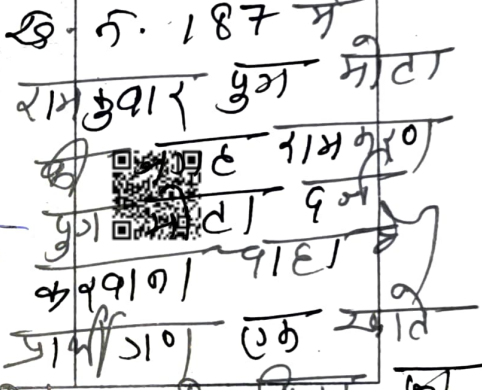 ख. न. 187 में
रामकुवार पुत्र मोटा
की जगह रामकरण
पुत्र मोटा दर्ज
करवाना चाहा
प्रार्थीगण एक खाते